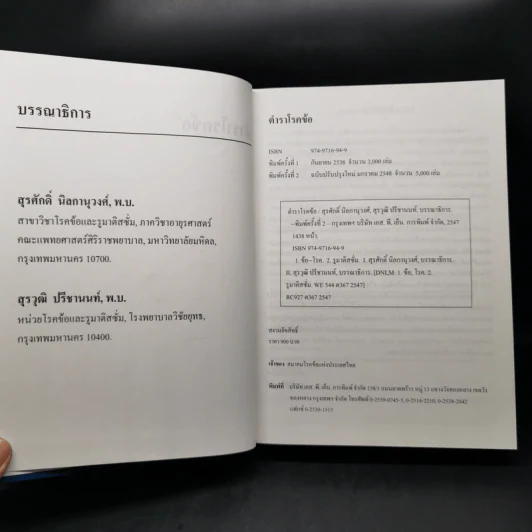 บรรณาธิการ
สุรศักดิ์ นิลกานุวงศ์, พ.บ.
สาขาวิชาโรคข้อและรูมาติสซั่ม, ภาควิชาอายุรศาสตร์
คณะแพทยศาสตร์ศิริราชพยาบาล, มหาวิทยาลัยมหิดล,
กรุงเทพมหานคร 10700.
สุรวุฒิ ปรีชานนท์, พ.บ.
หน่วยโรคข้อและรูมาติสซั่ม, โรงพยาบาลวิชัยยุทธ,
กรุงเทพมหานคร 10400.
ตำราโรคข้อ
ISBN 974-9716-94-9
พิมพ์ครั้งที่ 1 กันยายน 2538 จำนวน 2,000 เล่ม
พิมพ์ครั้งที่ 2 ฉบับปรับปรุงใหม่ มกราคม 2548 จำนวน 5,000 เล่ม
ตำราโรคข้อ / สุรศักดิ์ นิลกานุวงศ์, สุรวุฒิ ปรีชานนท์, บรรณาธิการ.
--พิมพ์ครั้งที่ 2 -- กรุงเทพฯ บริษัท เอส. พี. เอ็น. การพิมพ์ จำกัด, 2547
1438 หน้า.
ISBN 974-9716-94-9
1. ข้อ--โรค. 2. รูมาติสซั่ม. 1. สุรศักดิ์ นิลกานุวงศ์, บรรณาธิการ.
II. สุรวุฒิ ปรีชานนท์, บรรณาธิการ. [DNLM: 1. ข้อ, โรค. 2.
รูมาติสซั่ม. WE 544 ต367 2547]
RC927 ต367 2547
สงวนลิขสิทธิ์
ราคา 900 บาท
เจ้าของ สมาคมโรคข้อแห่งประเทศไทย
พิมพ์ที่ บริษัท เอส. พี. เอ็น. การพิมพ์ จำกัด
กรุงเทพฯ